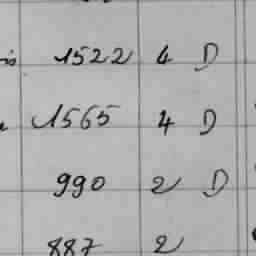 1522 4 D
1565 4 D
990 2 D
887 2